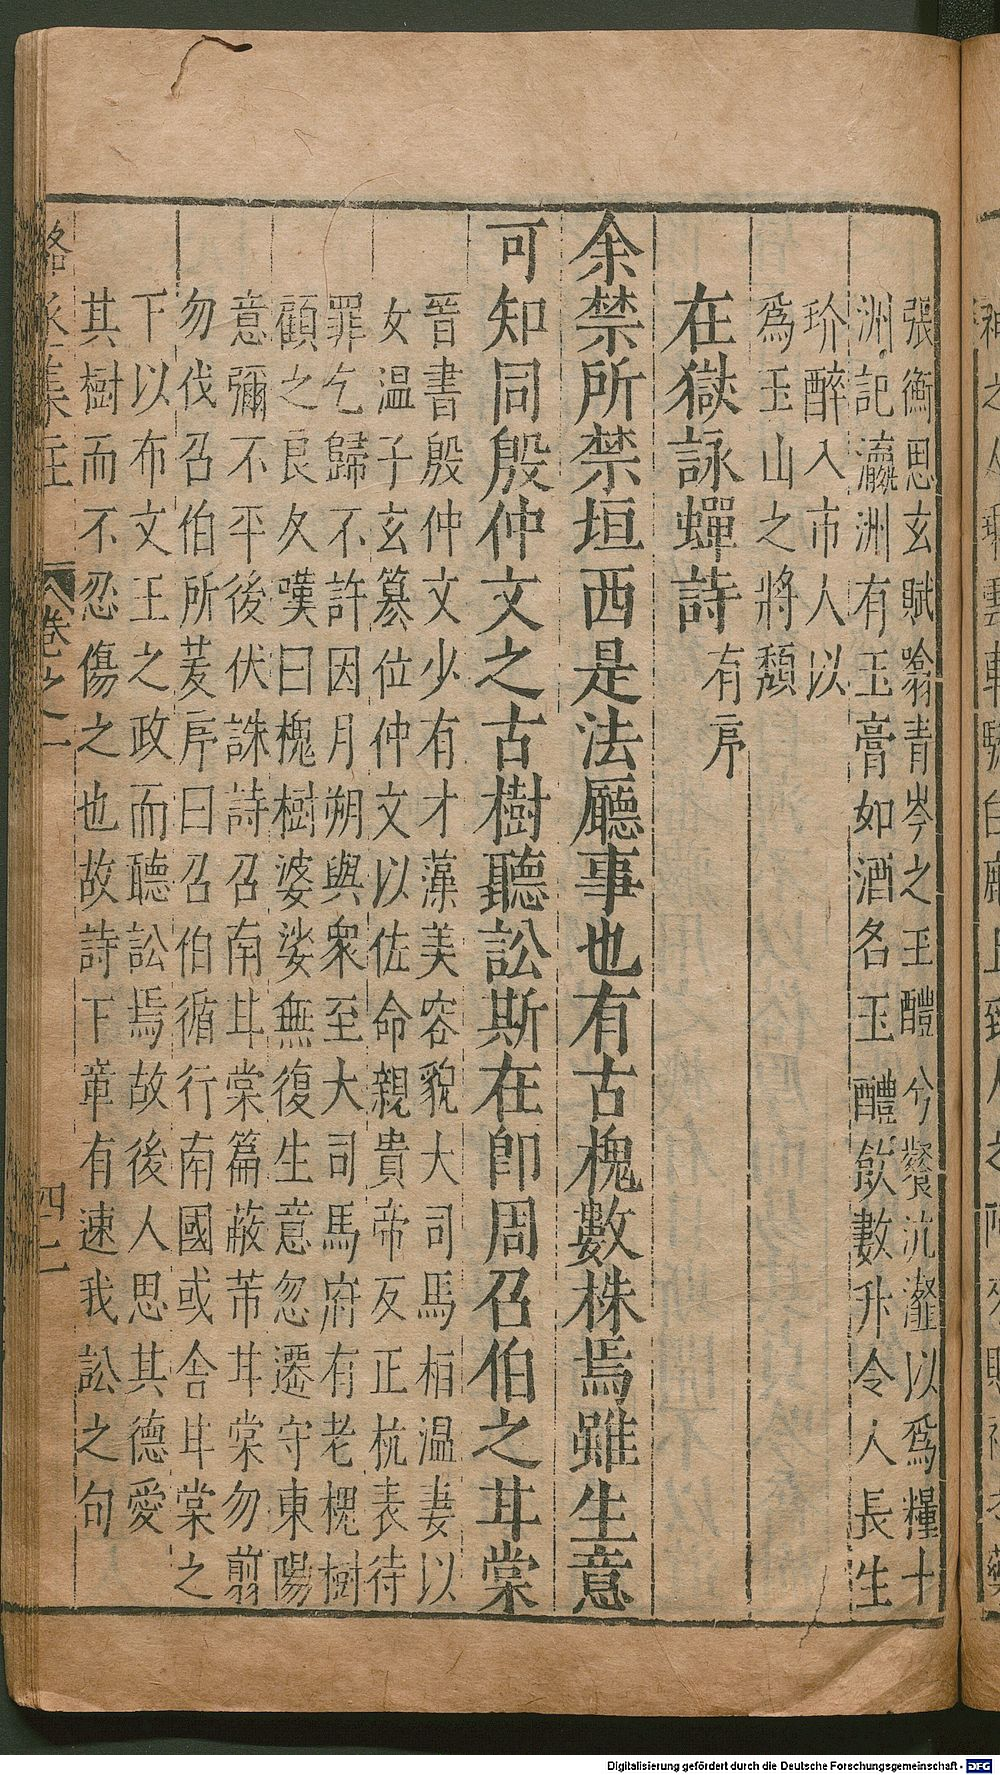 張衡思玄賦噏青岑之玉醴兮餐沆瀣以爲糧十
洲記瀛洲有玉膏如酒名玉醴飲數升令人長生
玠醉入市人以
爲玉山之將頽
在獄詠蟬詩有序
余禁所禁垣西是法廳事也有古槐數株焉雖生意
可知同殷仲文之古樹聽訟斯在卽周召伯之甘棠
晉書殷仲文少有才藻美容貌大司馬桓温妻以
女温子玄簒位仲文以佐命親貴帝反正抗表待
罪乞歸不許因月朔與衆至大司馬府有老槐樹
顧之良久嘆曰槐樹婆娑無復生意忽遷守東陽
意彌不平後伏誅詩召南甘棠篇蔽芾甘棠勿翦
勿伐召伯所茇序曰召伯循行南國或舍甘棠之
下以布文王之政而聽訟焉故後人思其德愛
其樹而不忍傷之也故詩下章有速我訟之句
卷之一 四二
Digitalisierung gefördert durch die Deutsche Forschungsgemeinschaft - DFG